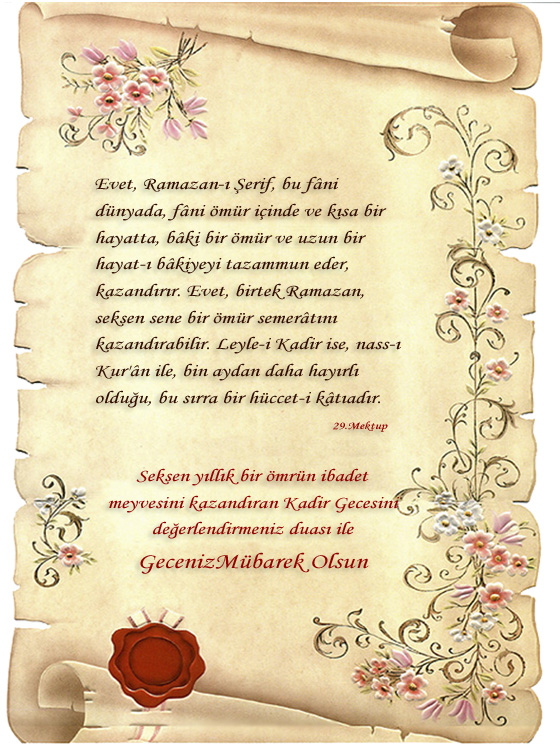 Evet, Ramazan-ı Şerif, bu fâni
dünyada, fâni ömür içinde ve kısa bir
hayatta, bâki bir ömür ve uzun bir
hayat-ı bâkiyeyi tazammun eder,
kazandırır. Evet, birtek Ramazan,
seksen sene bir ömür semerâtını
kazandırabilir. Leyle-i Kadir ise, nass-ı
Kur'ân ile, bin aydan daha hayırlı
olduğu, bu sırra bir hüccet-i kâtıadır.
29.Mektup
Seksen yıllık bir ömrün ibadet
meyvesini kazandıran Kadir Gecesini
değerlendirmeniz duası ile
GecenizMübarek Olsun